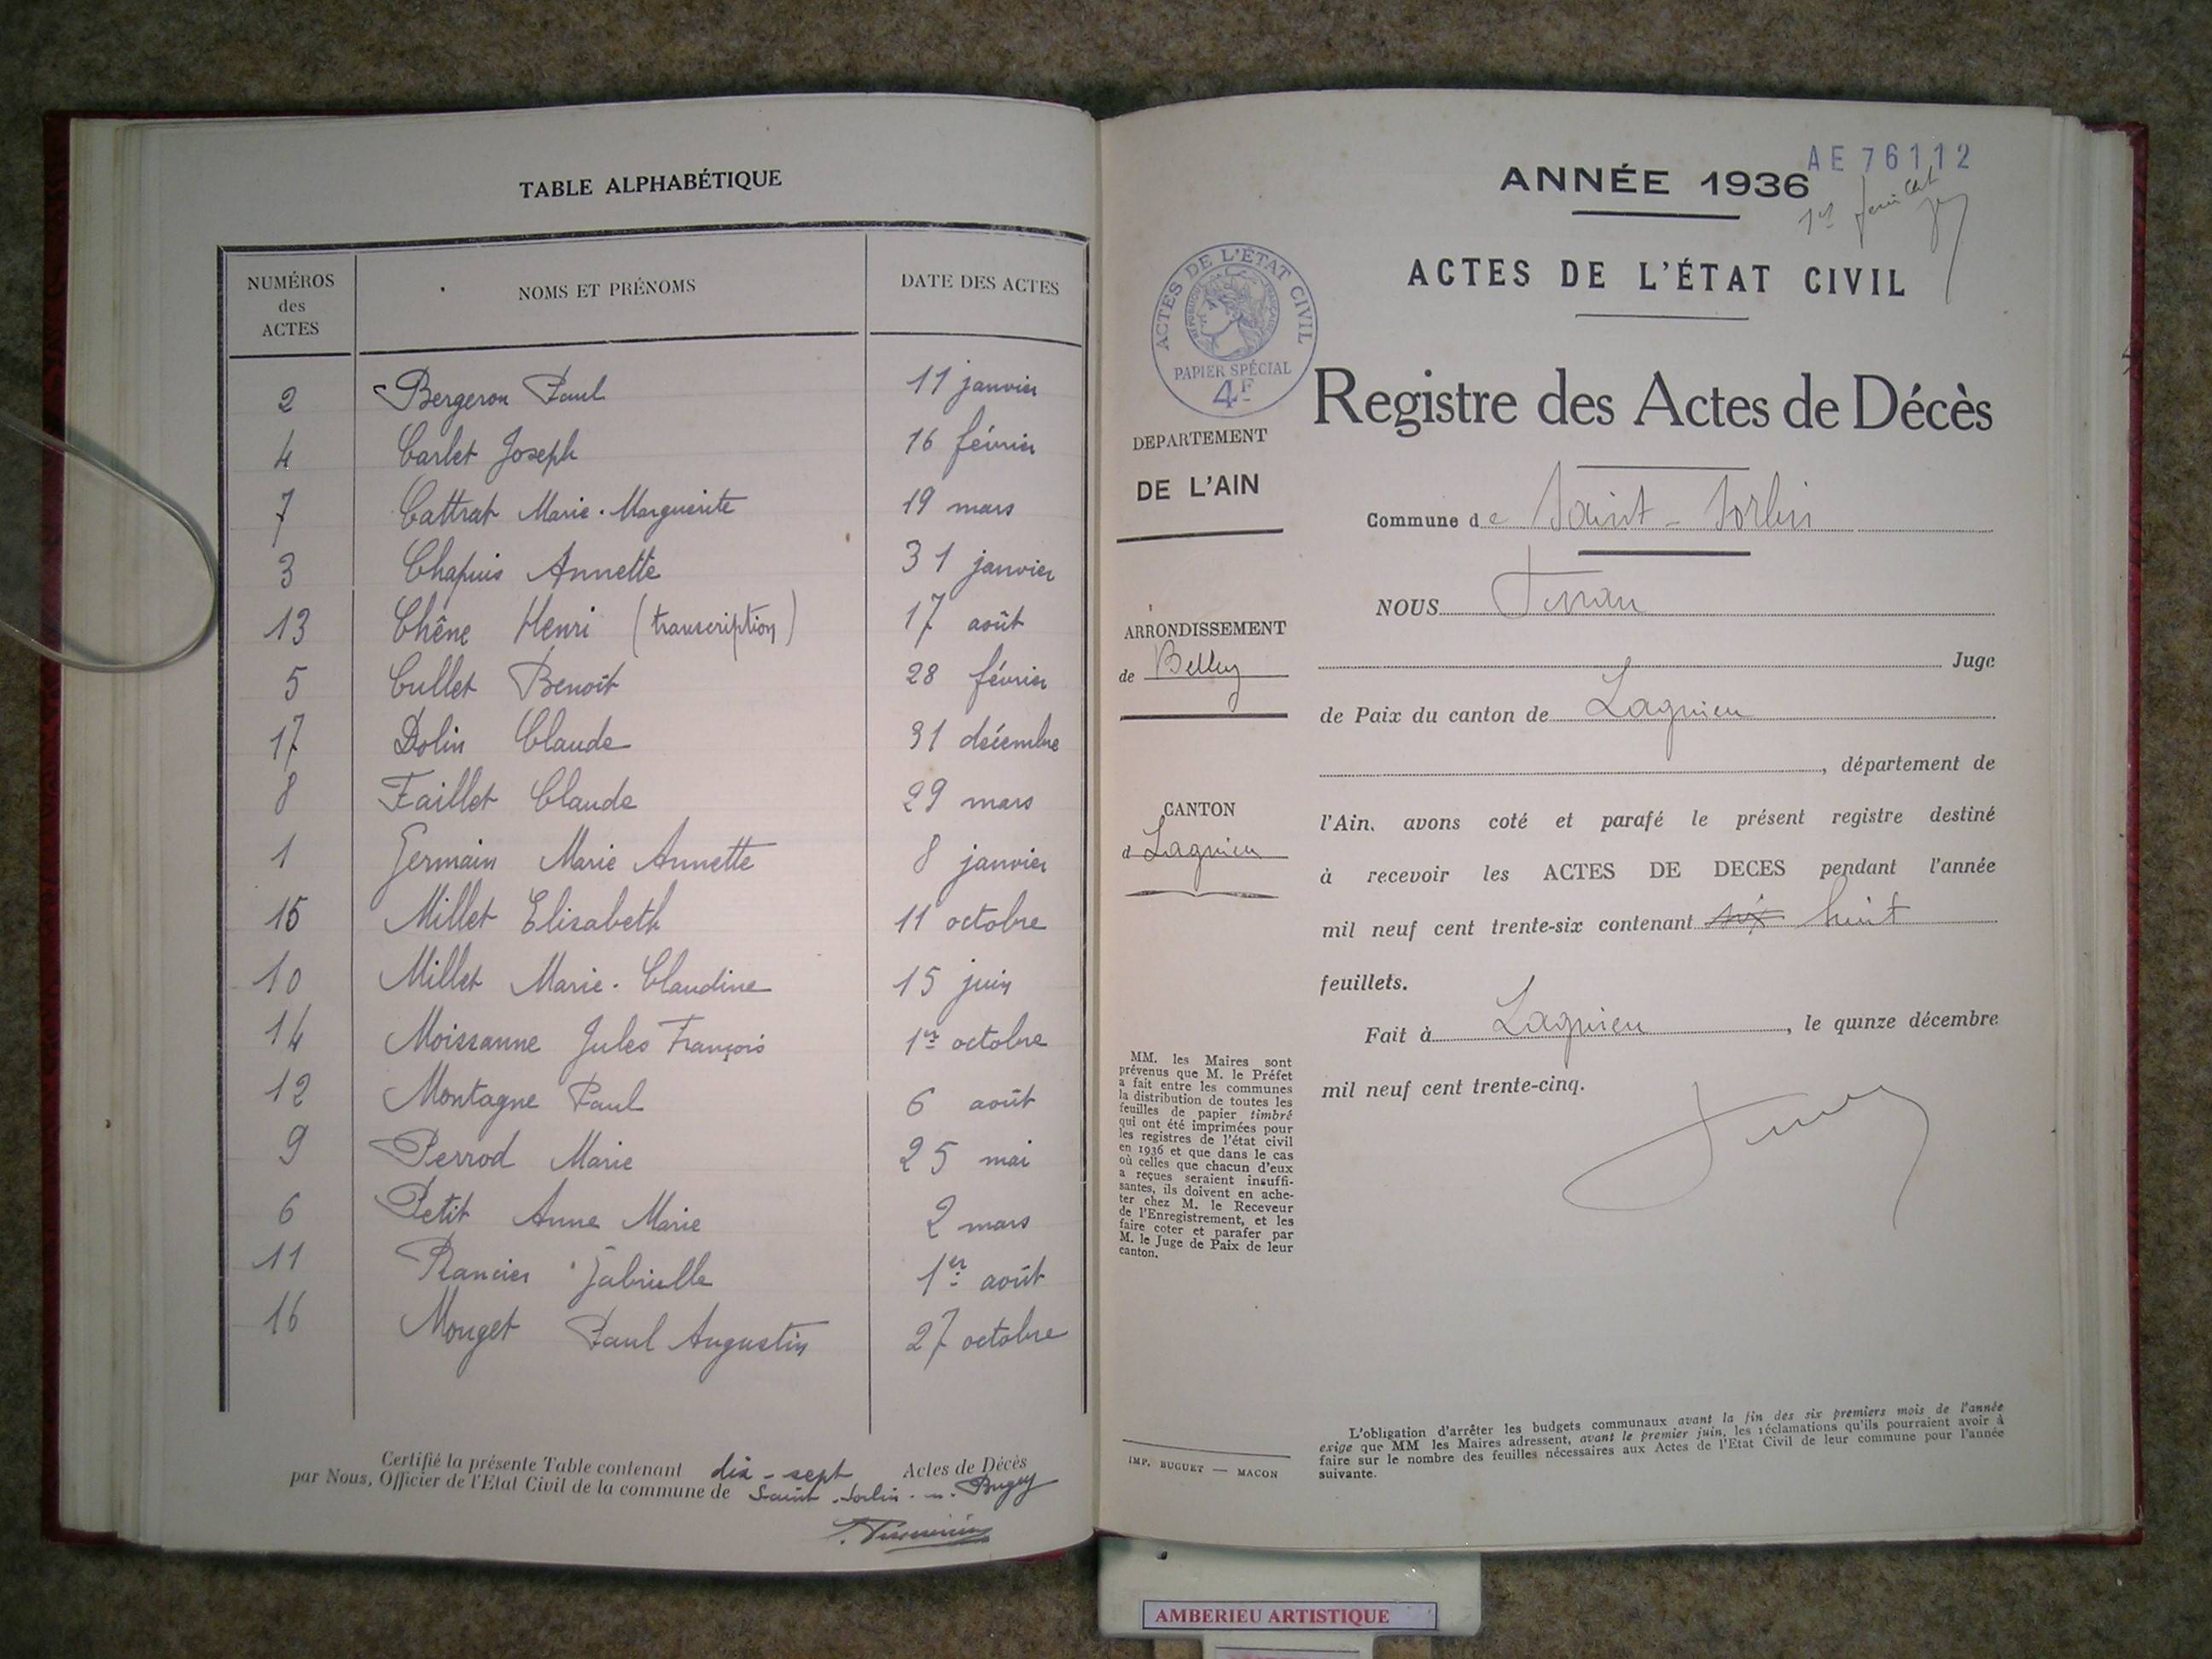 TABLE ALPHABÉTIQUE
NUMÉROS
des
ACTES
NOMS ET PRÉNOMS
DATE DES ACTES
2 Bergeron Paul 11 janvier
4 Carlet Joseph 16 février
7 Cattrat Marie-Marguerite 19 mars
3 Chapuis Annette 31 janvier
13 Chêne Henri (transcription) 17 août
5 Cullet Benoit 28 février
17 Dolin Claude 31 décembre
8 Faillet Claude 29 mars
1 Germain Marie Annette 8 janvier
15 Millet Elisabeth 11 octobre
10 Millet Marie-Claudine 15 juin
14 Moissanne Jules François 1er octobre
12 Montagne Paul 6 août
9 Perrod Marie 25 mai
6 Petit Anne Marie 2 mars
11 Rancier Gabrielle 1er août
16 Mouget Paul Augustin 27 octobre
Certifié la présente Table contenant dix-sept Actes de Décès
par Nous, Officier de l'Etat Civil de la commune de Saint-Sorlin-en-Bugey
AE 76112
ANNÉE 1936
1er
ACTES DE L'ÉTAT CIVIL
ACTES DE L'ÉTAT CIVIL
PAPIER SPÉCIAL
4F
Registre des Actes de Décès
DEPARTEMENT
DE L'AIN
Commune de Saint-Sorlin
NOUS
ARRONDISSEMENT
de Belley
Juge
de Paix du canton de Lagnieu
, département de
CANTON
d Lagnieu
l'Ain, avons coté et parafé le présent registre destiné
à recevoir les ACTES DE DECES pendant l'année
mil neuf cent trente-six contenant six huit
feuillets.
Fait à Lagnieu, le quinze décembre
mil neuf cent trente-cinq.
MM. les Maires sont
prévenus que M. le Préfet
a fait entre les communes
la distribution de toutes les
feuilles de papier timbré
qui ont été imprimées pour
les registres de l'état civil
en 1936 et que dans le cas
où celles que chacun d'eux
a reçues seraient insuffi-
santes, ils doivent en ache-
ter chez M. le Receveur
de l'Enregistrement, et les
faire coter et parafer par
M. le Juge de Paix de leur
canton.
IMP. BUGUET — MACON
L'obligation d'arrêter les budgets communaux avant la fin des six premiers mois de l'année
exige que MM les Maires adressent, avant le premier juin, les réclamations qu'ils pourraient avoir à
faire sur le nombre des feuilles nécessaires aux Actes de l'Etat Civil de leur commune pour l'année
suivante.
AMBERIEU ARTISTIQUE